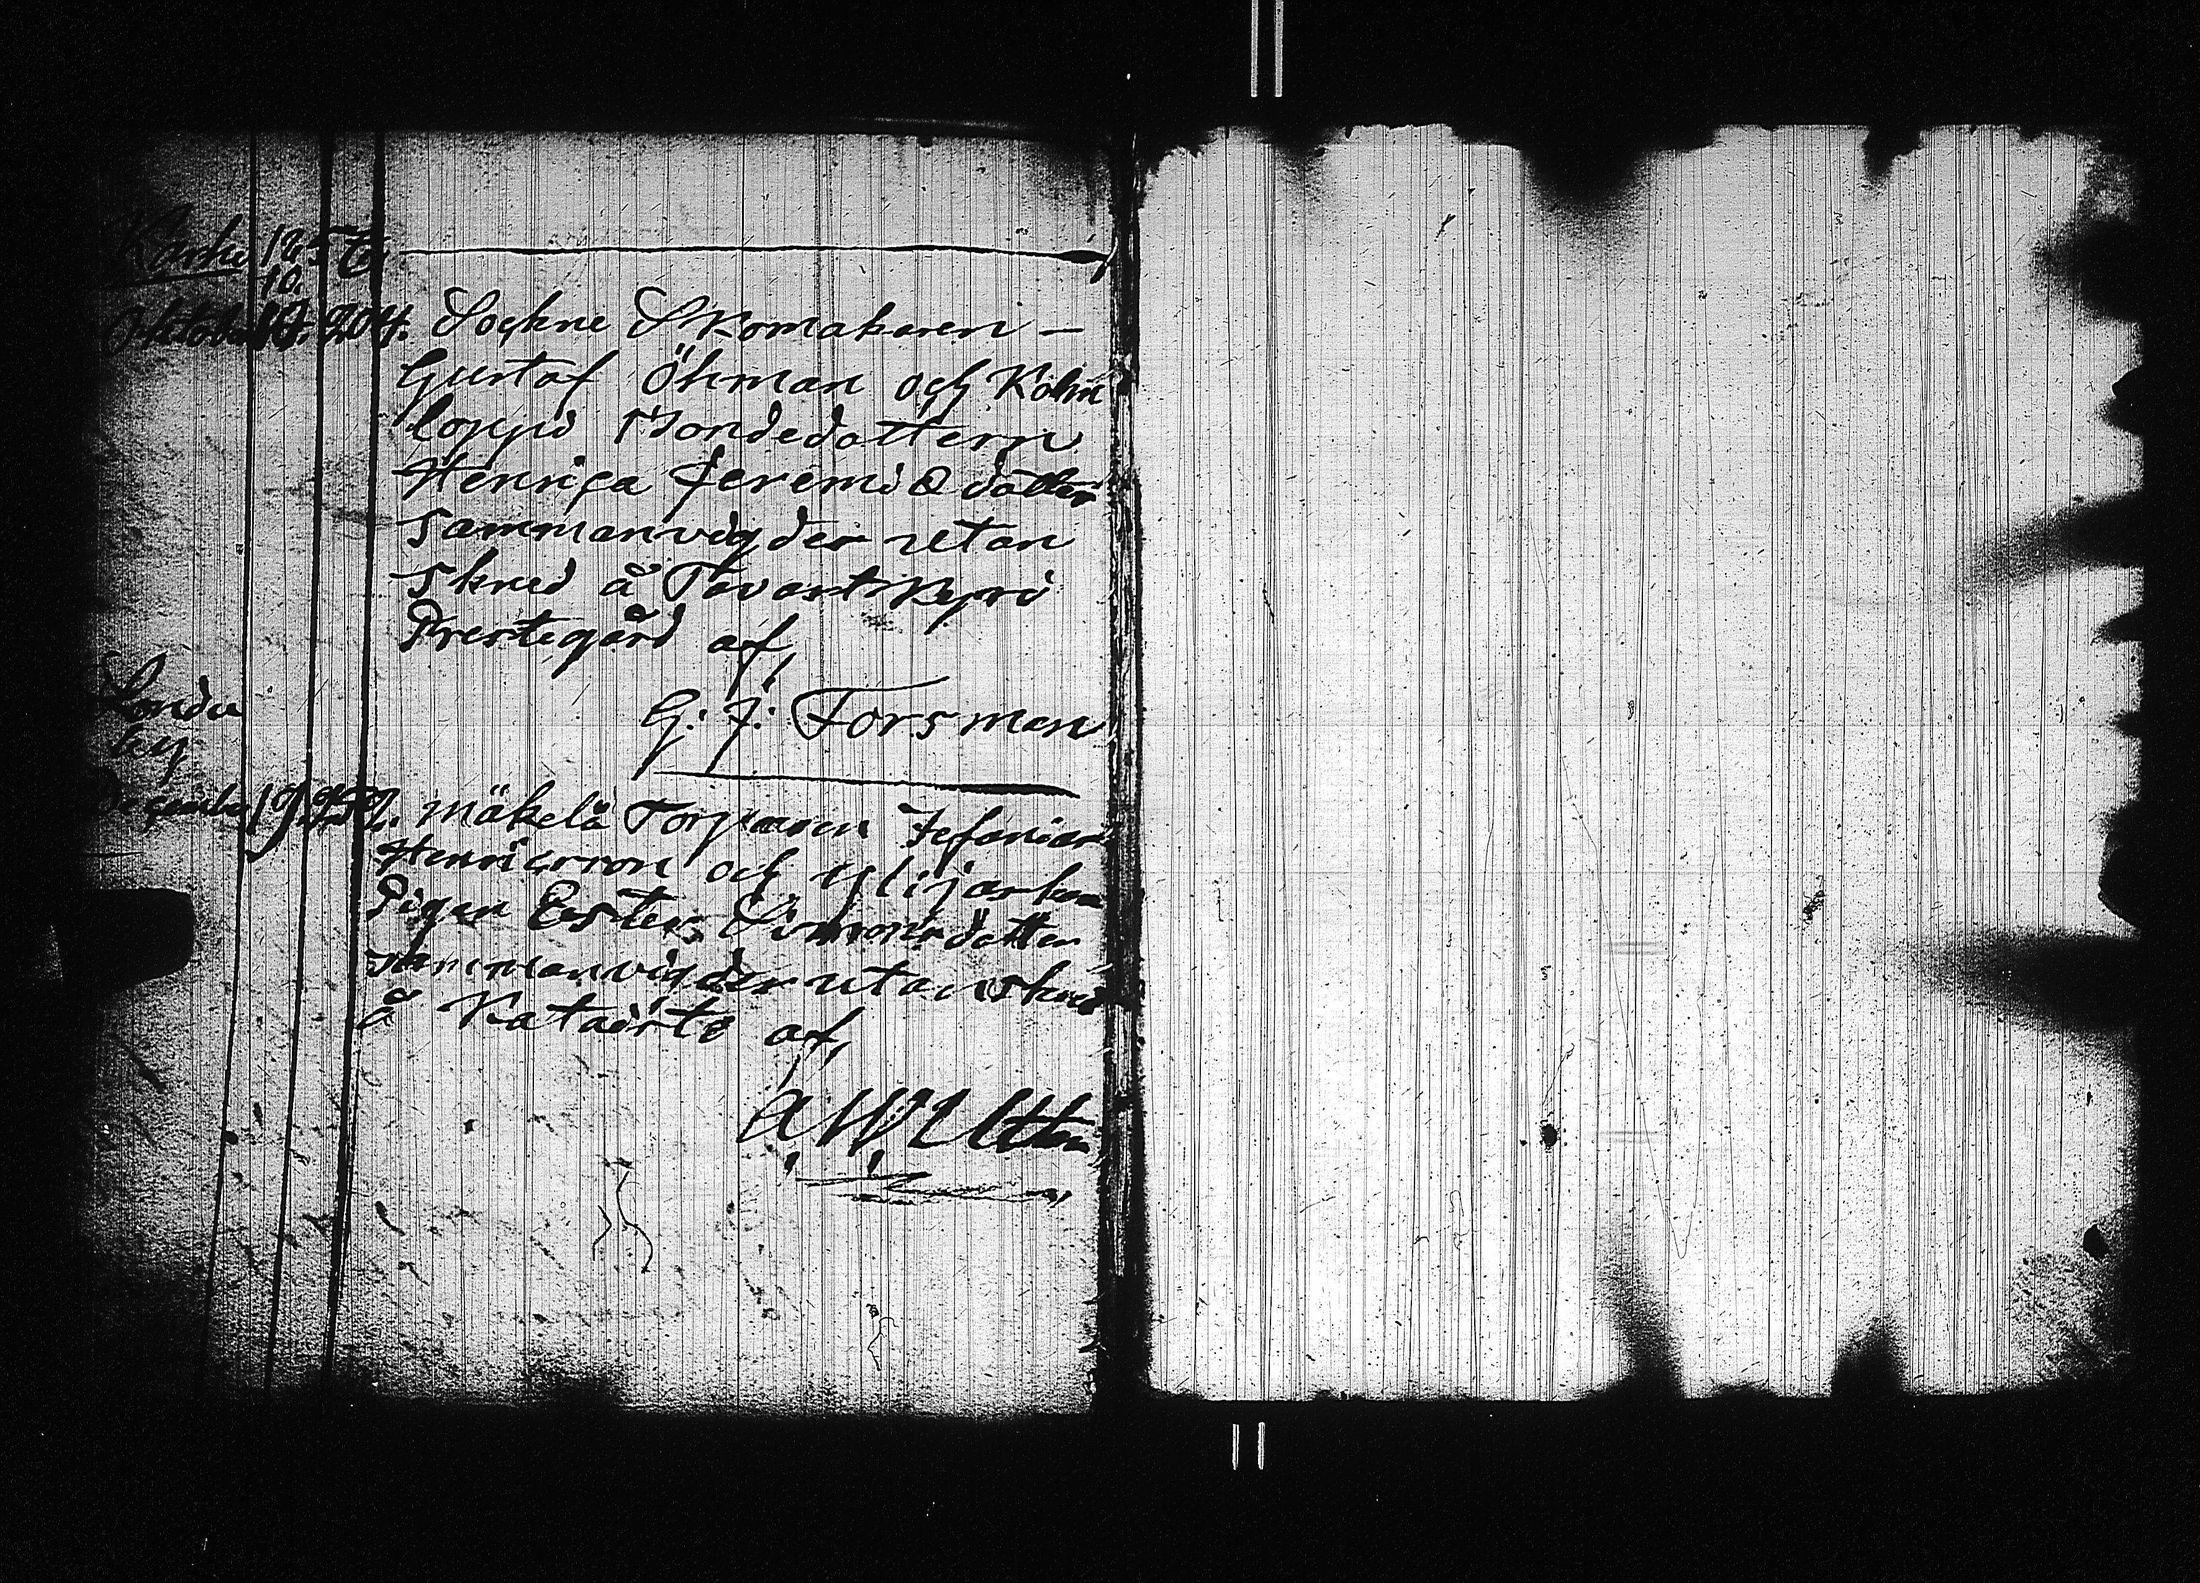 Karhe 1856
10.
October 17. 204. Sockne Skomakaren —
Gustaf Öhman och Kolm
loppis Bondedottern
Henrica Jeremiedotter
sammanvigder utan
skrud å Tavastkyro
Prestegård af,
G: J: Forsman
Londu
by
December 19. 259. Mäkelä Torparen Zefanias
Henricsson och Ylijaska
Pigan Ester Simonsdotter
sammanvigder utan skrud
å Kataisto af,
A W